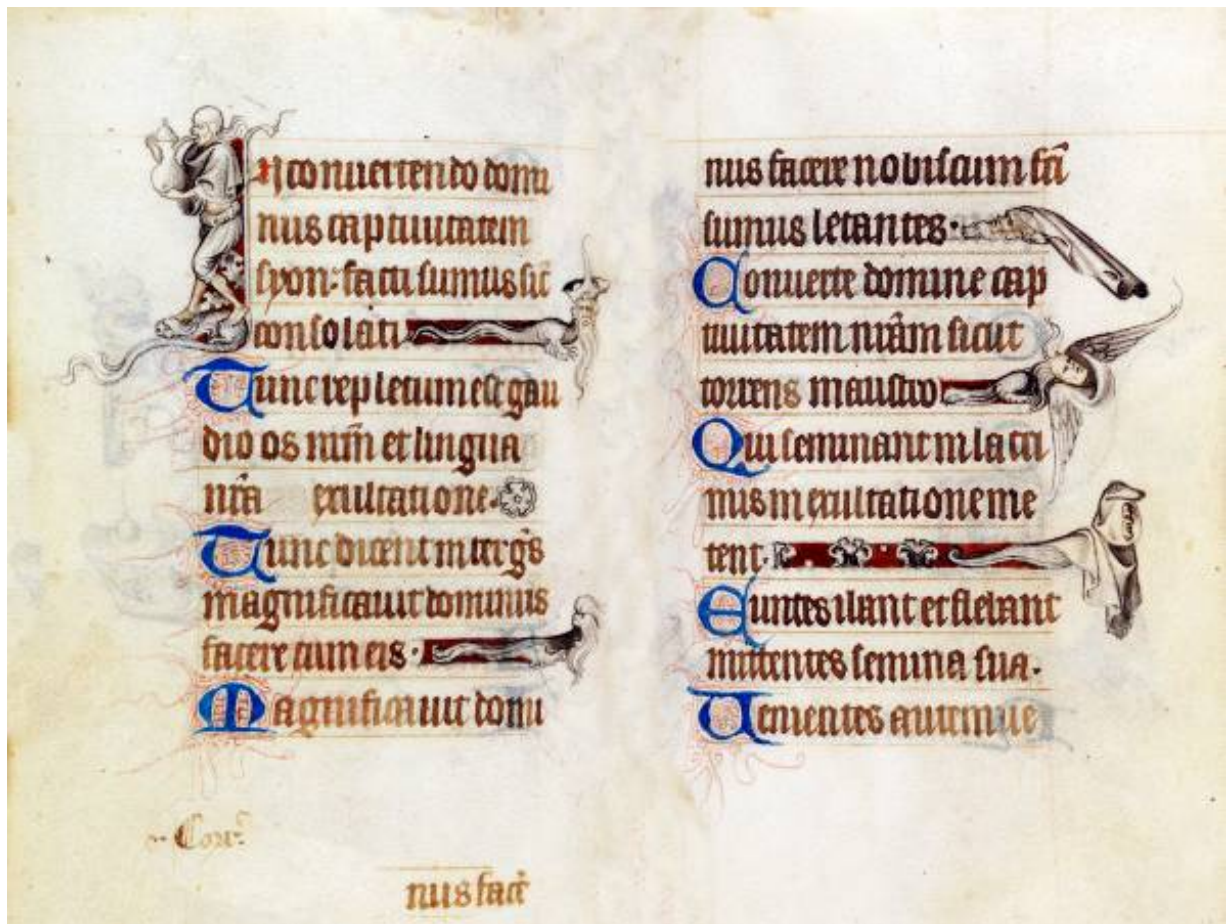 In conuertendo domi
nus captiuitatem
syon: facti sumus sic̄
consolati
Tunc repletum est gau
dio os nr̄m et lingua
nr̄a exultatione.
Tunc dicent int̄ gēs
magnificauit dominus
facere cum eis.
Magnificauit domi
Corr̄
nus facē
nus facere nobiscum fc̄i
sumus letantes.
Conuerte domine cap
tiuitatem nr̄am sicut
torrens in austro
Qui seminant in lacri
mis in exultatione me
tent.
Euntes ibant et flebant
mittentes semina sua.
Uenientes autem ue